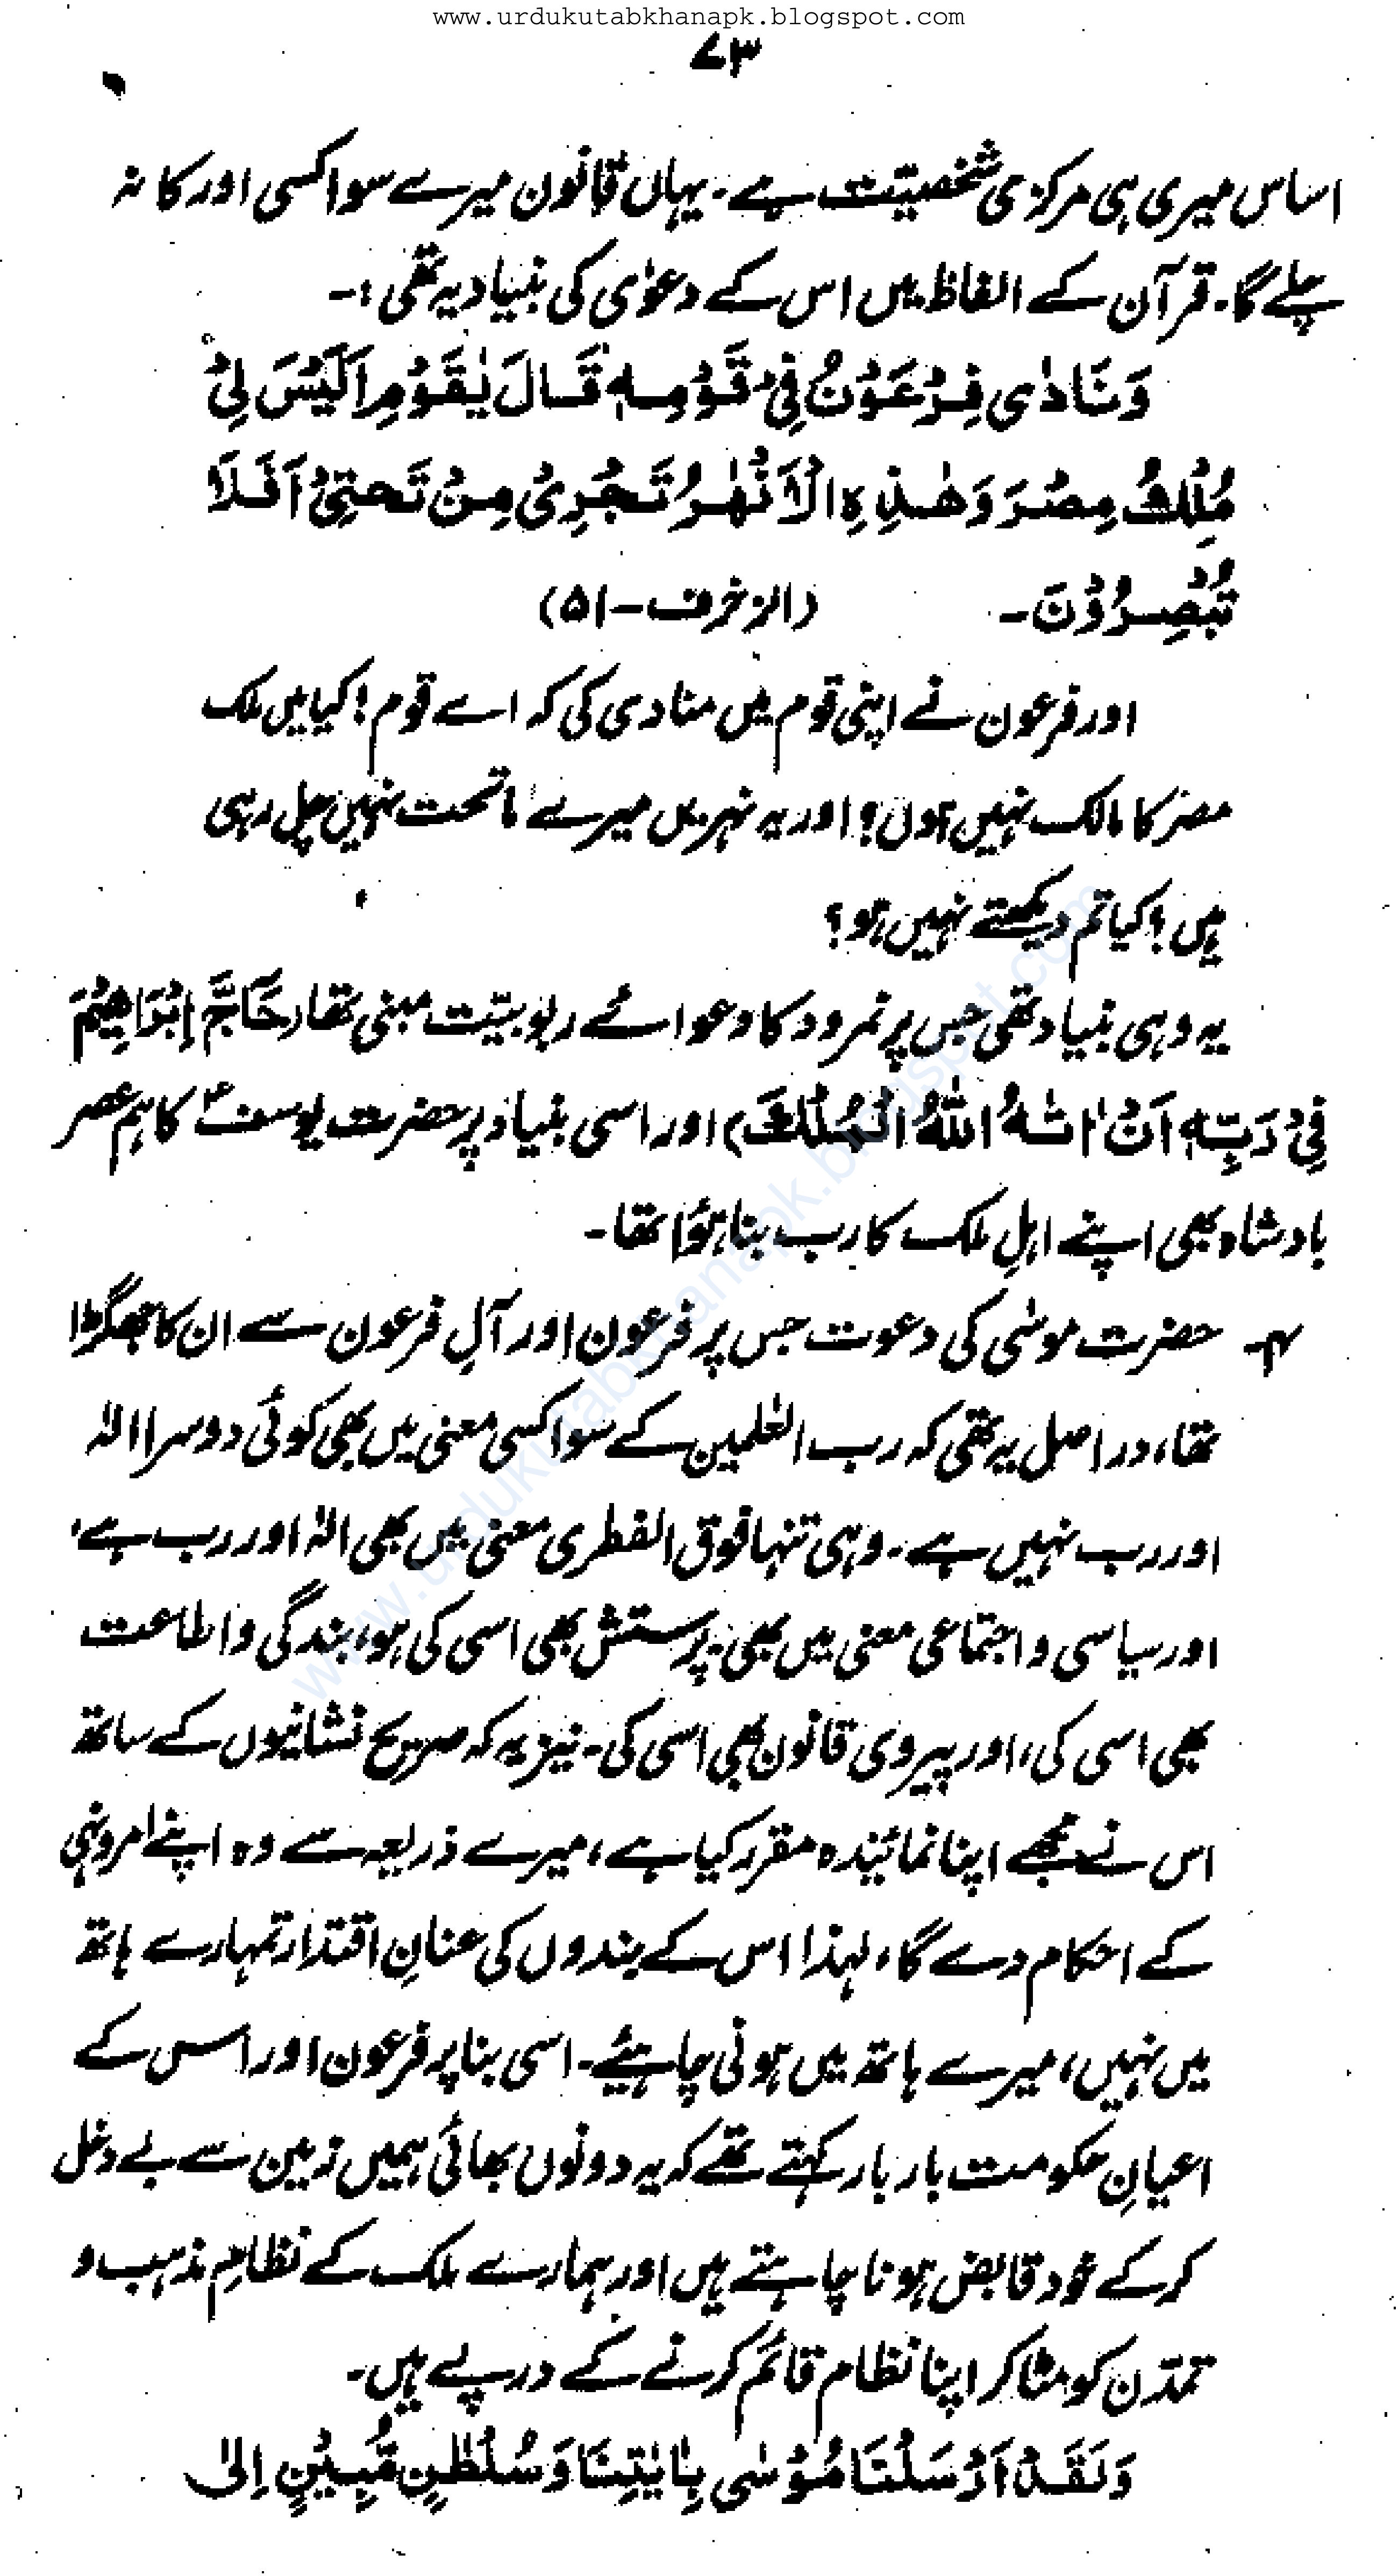 www.urdukutabkhanapk.blogspot.com
۷۳
اساس میری ہی مرکزی شخصیت ہے۔ یہاں قانون میرے سوا کسی اور کا نہ
چلے گا۔ قرآن کے الفاظ میں اس کے دعوٰی کی بنیاد یہ تھی :۔
وَنَادٰى فِرْعَوْنُ فِیْ قَوْمِهٖ قَالَ یٰقَوْمِ اَلَیْسَ لِیْ
مُلْكُ مِصْرَ وَهٰذِهِ الْاَنْهٰرُ تَجْرِیْ مِنْ تَحتِیْ اَفَلَا
تُبْصِرُوْنَ۔ (الزخرف-۵۱)
اور فرعون نے اپنی قوم میں منادی کی کہ اے قوم! کیا میں ملک
مصر کا مالک نہیں ہوں؟ اور یہ نہریں میرے ماتحت نہیں چل رہی
ہیں؟ کیا تم دیکھتے نہیں ہو؟
یہ وہی بنیاد تھی جس پر نمرود کا دعوائے ربوبیّت مبنی تھا (حَآجَّ اِبْرَاهِیْمَ
فِیْ رَبِّهٖ اَنْ اٰتٰهُ اللّٰهُ الْمُلْكَ) اور اسی بنیاد پر حضرت یوسفؑ کا ہم عصر
بادشاہ بھی اپنے اہلِ ملک کا رب بنا ہُوا تھا۔
۴۔ حضرت موسٰی کی دعوت جس پر فرعون اور آلِ فرعون سے ان کا جھگڑا
تھا، دراصل یہ تھی کہ رب العٰلمین کے سوا کسی معنی میں بھی کوئی دوسرا الٰہ
اور رب نہیں ہے۔ وہی تنہا فوق الفطری معنی میں بھی الٰہ اور رب ہے،
اور سیاسی و اجتماعی معنی میں بھی۔ پرستش بھی اسی کی ہو، بندگی و اطاعت
بھی اسی کی، اور پیروی قانون بھی اسی کی۔ نیز یہ کہ صریح نشانیوں کے ساتھ
اس نے مجھے اپنا نمائندہ مقرر کیا ہے، میرے ذریعہ سے وہ اپنے امر و نہی
کے احکام دے گا، لہٰذا اس کے بندوں کی عنانِ اقتدار تمہارے ہاتھ
میں نہیں، میرے ہاتھ میں ہونی چاہئیے۔ اسی بنا پر فرعون اور اس کے
اعیانِ حکومت بار بار کہتے تھے کہ یہ دونوں بھائی ہمیں زمین سے بے دخل
کر کے خود قابض ہونا چاہتے ہیں اور ہمارے ملک کے نظامِ مذہب و
تمدّن کو مٹا کر اپنا نظام قائم کرنے کے درپے ہیں۔
وَلَقَدْ اَرْسَلْنَا مُوْسٰی بِاٰیٰتِنَا وَسُلْطٰنٍ مُّبِیْنٍ اِلٰی
www.urdukutabkhanapk.blogspot.com